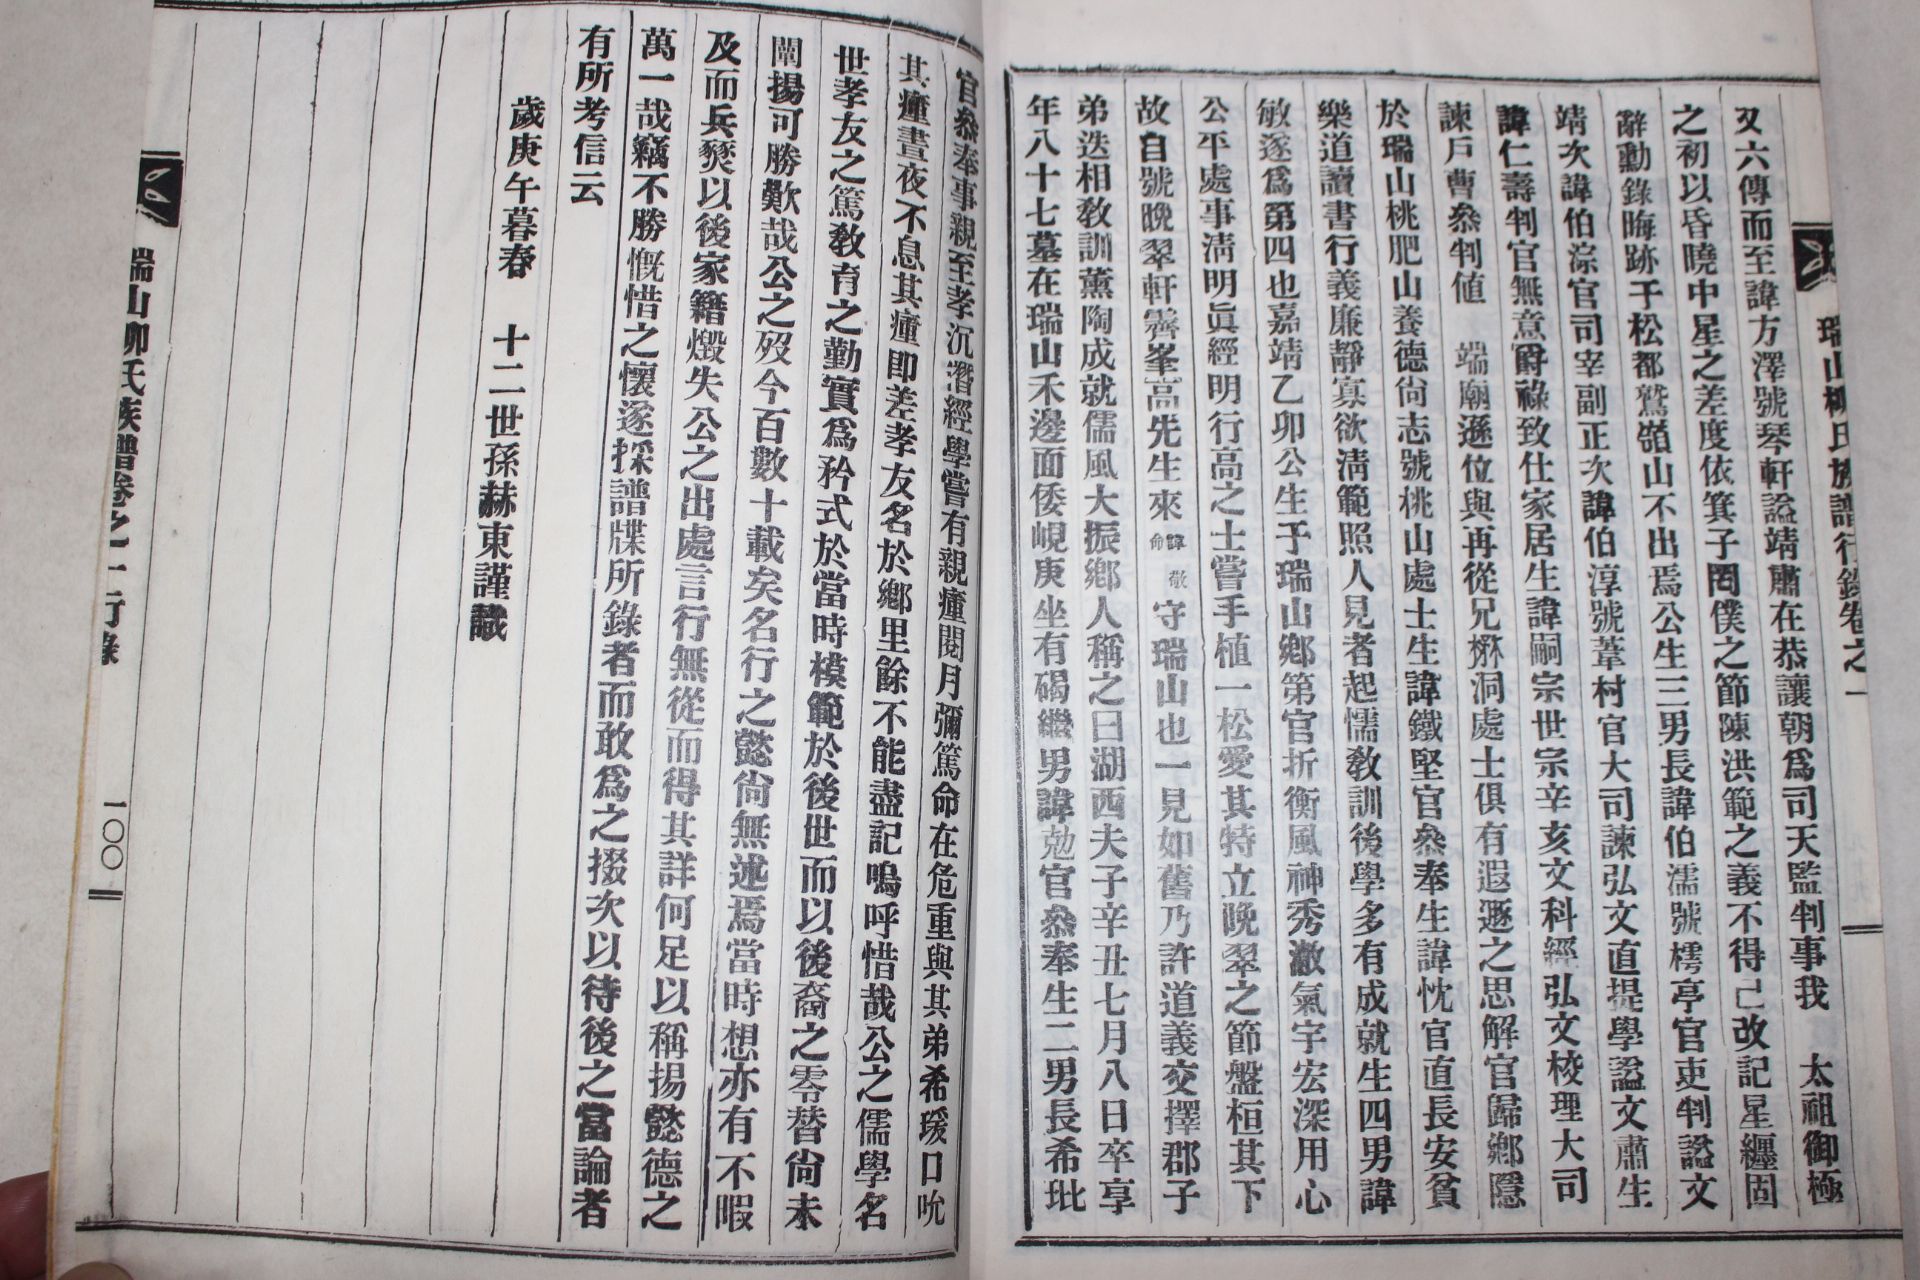 瑞山柳氏族譜行錄卷之一
又六傳而至諱方澤號琴軒諡靖肅在恭讓朝爲司天監判事我　太祖御極
之初以昏曉中星之差度依箕子罔僕之節陳洪範之義不得已改記星纏固
辭勳錄晦跡于松都鵞嶺山不出焉公生三男長諱伯濡號樗亭官吏判諡文
靖次諱伯淙官司宰副正次諱伯淳號葦村官大司諫弘文直提學諡文肅生
諱仁壽判官無意爵祿致仕家居生諱嗣宗世宗辛亥文科經弘文校理大司
諫戶曹叅判値　端廟遜位與再從兄楙洞處士俱有遐遯之思解官歸鄕隱
於瑞山桃肥山養德尙志號桃山處士生諱鐵堅官叅奉生諱忱官直長安貧
樂道讀書行義廉靜寡欲淸範照人見者起懦敎訓後學多有成就生四男諱
敏遂爲第四也嘉靖乙卯公生于瑞山鄕第官折衡風神秀澈氣宇宏深用心
公平處事淸明眞經明行高之士嘗手植一松愛其特立晩翠之節盤桓其下
故自號晩翠軒霽峯高先生來諱敬命守瑞山也一見如舊乃許道義交擇郡子
弟迭相敎訓薰陶成就儒風大振鄕人稱之曰湖西夫子辛丑七月八日卒享
年八十七墓在瑞山禾邊面倭峴庚坐有碣繼男諱勉官叅奉生二男長希玭
官叅奉事親至孝沉潛經學嘗有親瘇閱月彌篤命在危重與其弟希瑗口吮
其瘇晝夜不息其瘇即差孝友名於鄕里餘不能盡記嗚呼惜哉公之儒學名
世孝友之篤敎育之勤實爲矜式於當時模範於後世而以後裔之零替尙未
闡揚可勝歎哉公之歿今百數十載矣名行之懿尙無述焉當時想亦有不暇
及而兵燹以後家籍燬失公之出處言行無從而得其詳何足以稱揚懿德之
萬一哉竊不勝慨惜之懷遂採譜牒所錄者而敢爲之掇次以待後之當論者
有所考信云
歲庚午暮春　十二世孫赫東謹識
瑞山柳氏族譜卷之一行錄
一〇〇